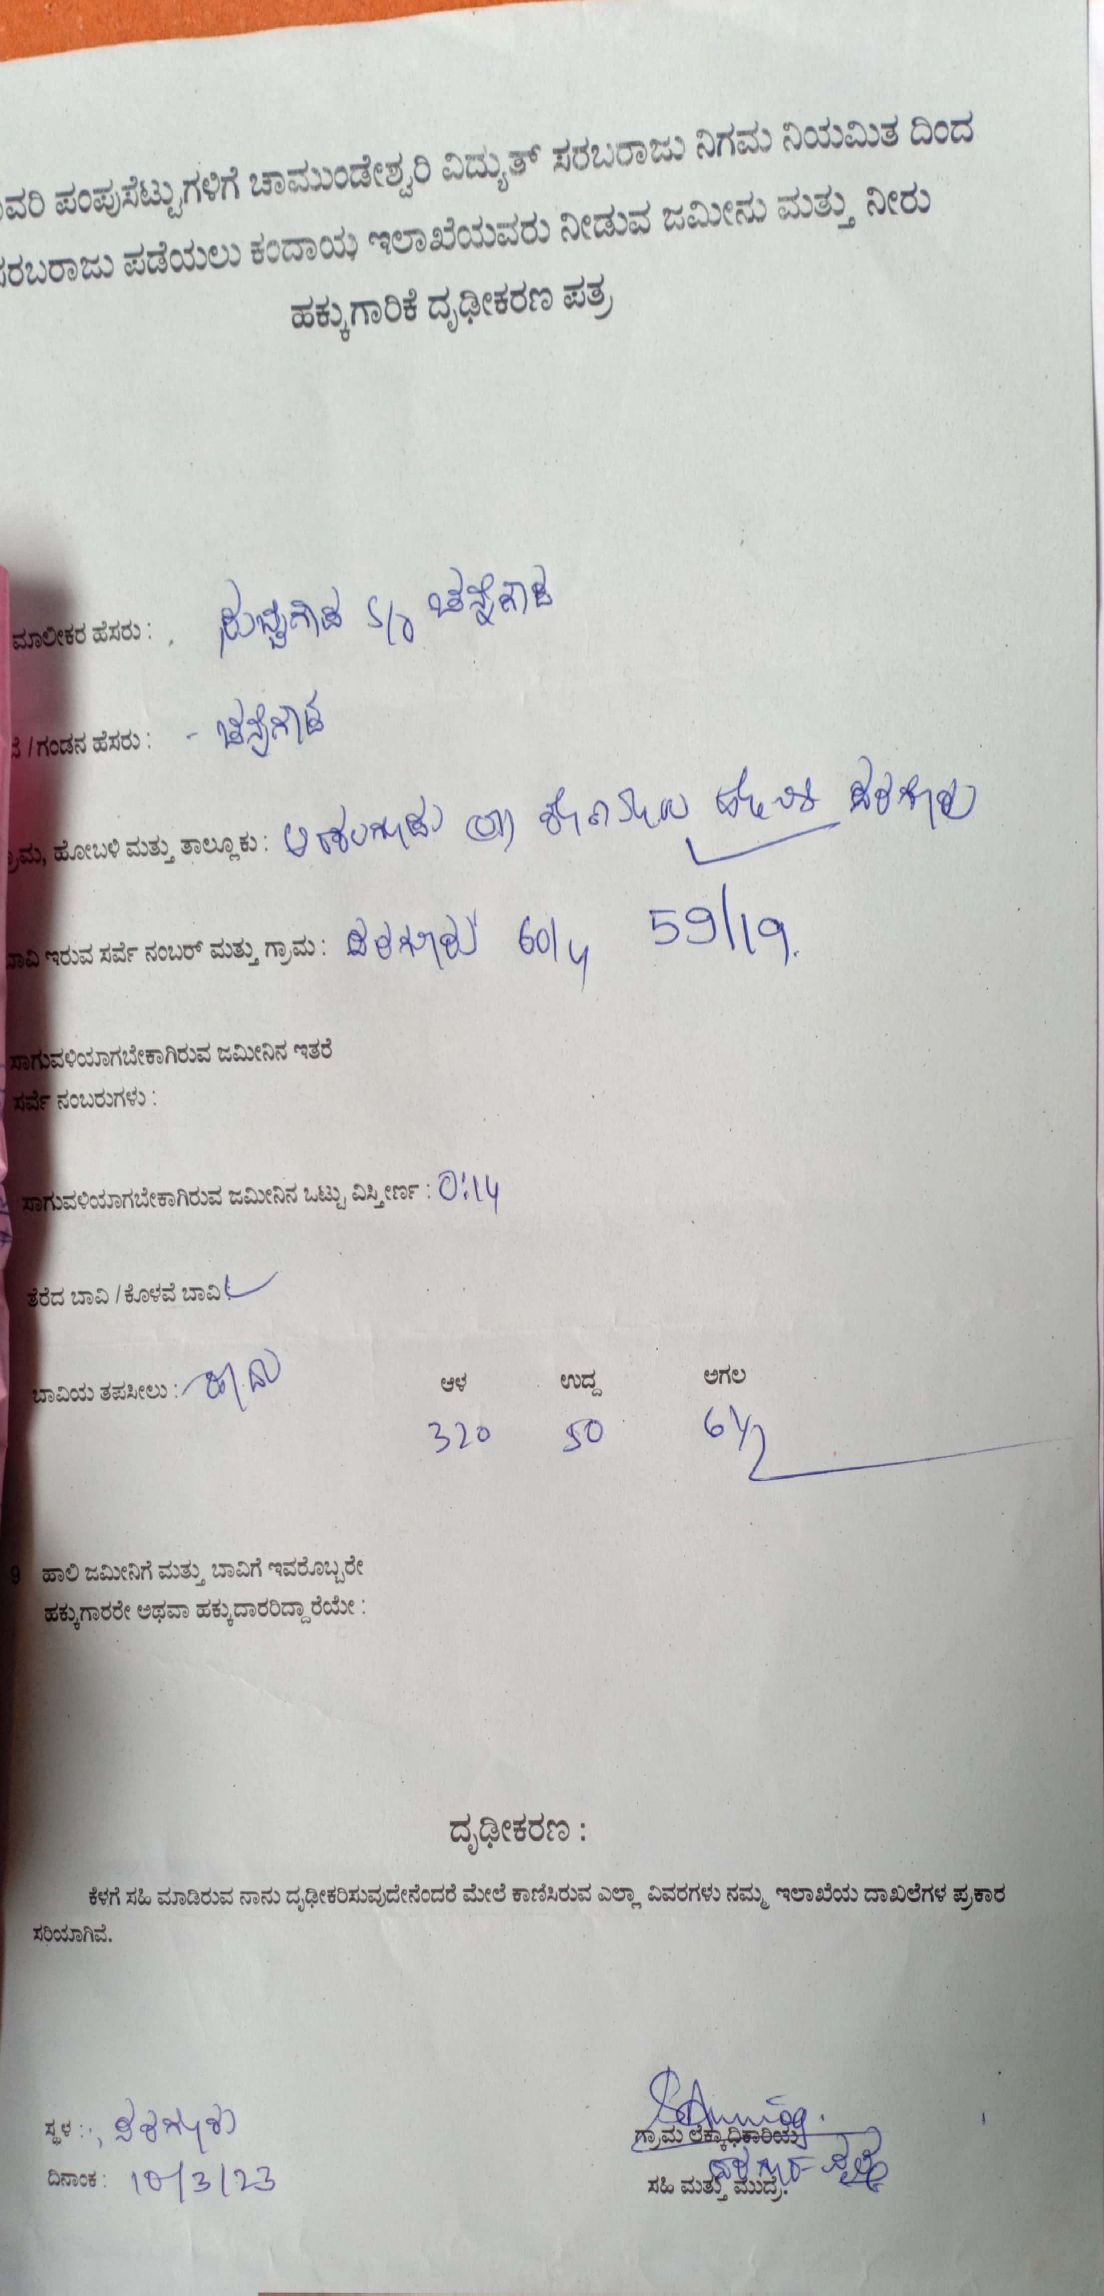 ವರಿ ಪಂಪುಸೆಟ್ಟುಗಳಿಗೆ ಚಾಮುಂಡೇಶ್ವರಿ ವಿದ್ಯುತ್ ಸರಬರಾಜು ನಿಗಮ ನಿಯಮಿತ ದಿಂದ
ಸರಬರಾಜು ಪಡೆಯಲು ಕಂದಾಯ ಇಲಾಖೆಯವರು ನೀಡುವ ಜಮೀನು ಮತ್ತು ನೀರು
ಹಕ್ಕುಗಾರಿಕೆ ದೃಢೀಕರಣ ಪತ್ರ
ಮಾಲೀಕರ ಹೆಸರು : S/o ಚನ್ನೇಗೌಡ
/ ಗಂಡನ ಹೆಸರು : - ಚನ್ನೇಗೌಡ
ಗ್ರಾಮ, ಹೋಬಳಿ ಮತ್ತು ತಾಲ್ಲೂಕು :
ಬಾವಿ ಇರುವ ಸರ್ವೆ ನಂಬರ್ ಮತ್ತು ಗ್ರಾಮ : 60/4 59/19.
ಸಾಗುವಳಿಯಾಗಬೇಕಾಗಿರುವ ಜಮೀನಿನ ಇತರೆ
ಸರ್ವೆ ನಂಬರುಗಳು :
ಸಾಗುವಳಿಯಾಗಬೇಕಾಗಿರುವ ಜಮೀನಿನ ಒಟ್ಟು ವಿಸ್ತೀರ್ಣ : 0:14
ತೆರೆದ ಬಾವಿ / ಕೊಳವೆ ಬಾವಿ :
ಬಾವಿಯ ತಪಸೀಲು : ಆಳ ಉದ್ದ ಅಗಲ
320 50 6½
9 ಹಾಲಿ ಜಮೀನಿಗೆ ಮತ್ತು ಬಾವಿಗೆ ಇವರೊಬ್ಬರೇ
ಹಕ್ಕುಗಾರರೇ ಅಥವಾ ಹಕ್ಕುದಾರರಿದ್ದಾರೆಯೇ :
ದೃಢೀಕರಣ :
ಕೆಳಗೆ ಸಹಿ ಮಾಡಿರುವ ನಾನು ದೃಢೀಕರಿಸುವುದೇನೆಂದರೆ ಮೇಲೆ ಕಾಣಿಸಿರುವ ಎಲ್ಲಾ ವಿವರಗಳು ನಮ್ಮ ಇಲಾಖೆಯ ದಾಖಲೆಗಳ ಪ್ರಕಾರ
ಸರಿಯಾಗಿವೆ.
ಸ್ಥಳ :
ಗ್ರಾಮ ಲೆಕ್ಕಾಧಿಕಾರಿಯ
ದಿನಾಂಕ : 10/3/23
ಸಹಿ ಮತ್ತು ಮುದ್ರೆ.